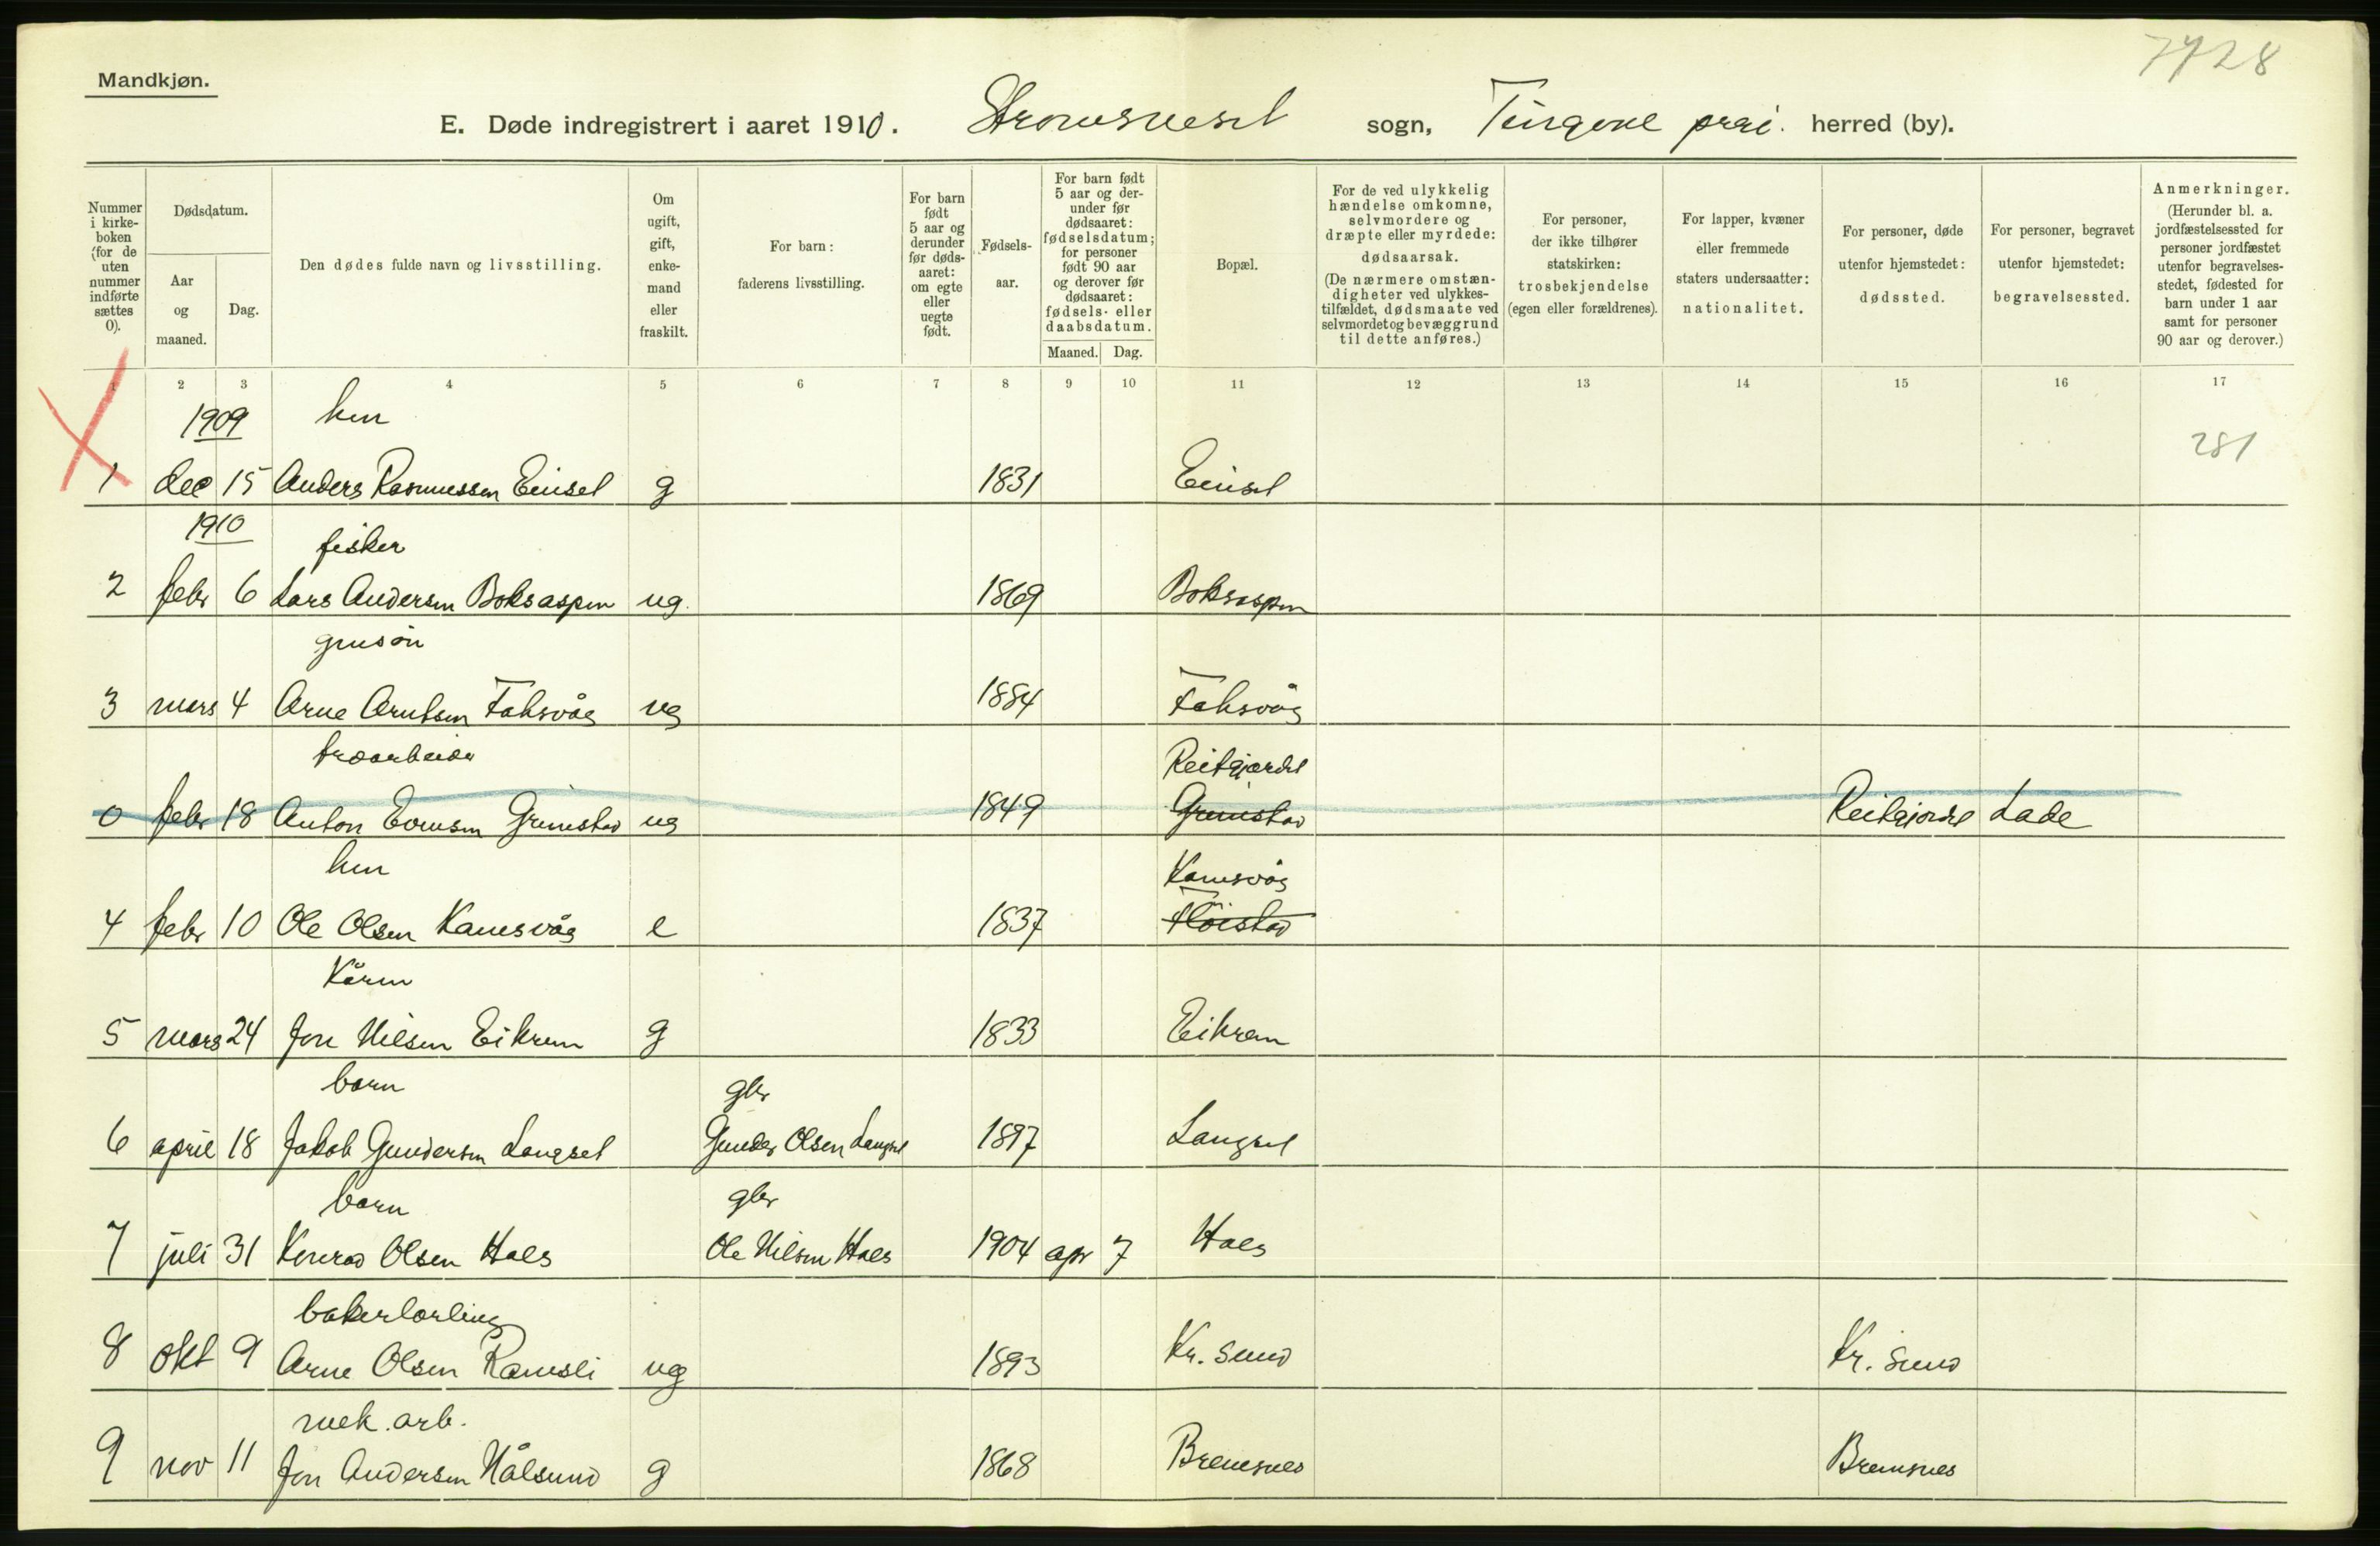 7728
Mandkjøn.
E. Døde indregistrert i aaret 1910. Stromsneset sogn, Tingvol præi. herred (by).
Nummer i kirke-boken (for de uten nummer indførte sættes 0).
Dødsdatum.
Aar og maaned.
Dag.
Den dødes fulde navn og livsstilling.
Om ugift, gift, enke-mand eller fraskilt.
For barn: faderens livsstilling.
For barn født 5 aar og derunder før døds-aaret: om egte eller uegte født.
Fødsels-aar.
For barn født 5 aar og der-under før dødsaaret: fødselsdatum; for personer født 90 aar og derover før dødsaaret: fødsels- eller daabsdatum.
Maaned. Dag.
Bopæl.
For de ved ulykkelig hændelse omkomne, selvmordere og dræpte eller myrdede: dødsaarsak. (De nærmere omstæn-digheter ved ulykkes-tilfældet, dødsmaate ved selvmordet og bevæggrund til dette anføres.)
For personer, der ikke tilhører statskirken: trosbekjendelse (egen eller forældrenes).
For lapper, kvæner eller fremmede staters undersaatter: nationalitet.
For personer, døde utenfor hjemstedet: dødssted.
For personer, begravet utenfor hjemstedet: begravelsessted.
Anmerkninger. (Herunder bl. a. jordfæstelsessted for personer jordfæstet utenfor begravelses-stedet, fødested for barn under 1 aar samt for personer 90 aar og derover.)
1 2 3 4 5 6 7 8 9 10 11 12 13 14 15 16 17
1909
281
1 dec 15 Anders Rasmussen Einset g 1831 Einset
1910 fisker
2 febr 6 Lars Andersen Boksaspen ug. 1869 Boksaspen
3 mars 4 Arne Arntsen Fahsvåg ug 1884 Fahsvåg
træarbeider Reitgjerdet
0 febr 18 Anton Evensen Grimstad ug 1849 Grimstad Reitgjerdet Lade
Kanesvåg
4 febr 10 Ole Olsen Kanesvåg e 1837 Flöistad
Kårm
5 mars 24 Jon Nilsen Eikrem g 1833 Eikrem
barn gbr
6 april 18 Jakob Gundersen Langset Gunder Olsen Langset 1897 Langset
barn gbr
7 juli 31 Konrad Olsen Hals Ole Nilsen Hals 1904 apr 7 Hals
bakerlærling
8 okt 9 Arne Olsen Ramsli ug 1893 Kr. sund Kr. sund
mek. arb.
9 nov 11 Jon Andersen Hålsund g 1868 Bremsnes Bremsnes